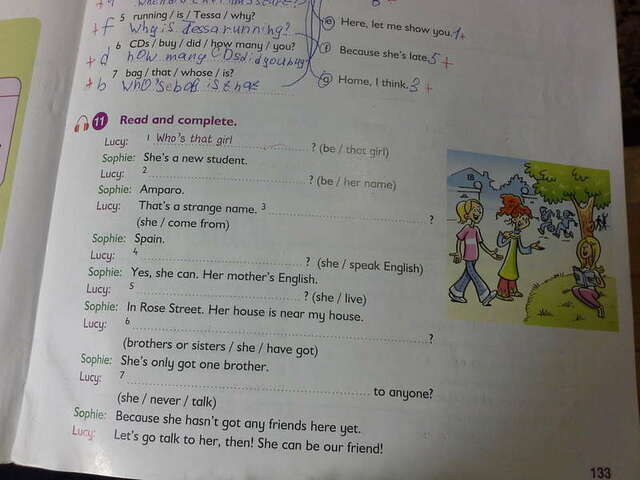 5 running / is / Tessa / why?
+f Why is Tessa running?
6 CDs / buy / did / how many / you?
+d how many CDs did you buy?
7 bag / that / whose / is?
+b
e Here, let me show you. 1+
f Because she's late. 5+
g Home, I think. 3+
11 Read and complete.
Lucy: 1 Who's that girl ? (be / that girl)
Sophie: She's a new student.
Lucy: 2 ? (be / her name)
Sophie: Amparo.
Lucy: That's a strange name. 3 ?
(she / come from)
Sophie: Spain.
Lucy: 4 ? (she / speak English)
Sophie: Yes, she can. Her mother's English.
Lucy: 5 ? (she / live)
Sophie: In Rose Street. Her house is near my house.
Lucy: 6 ?
(brothers or sisters / she / have got)
Sophie: She's only got one brother.
Lucy: 7 to anyone?
(she / never / talk)
Sophie: Because she hasn't got any friends here yet.
Lucy: Let's go talk to her, then! She can be our friend!
133